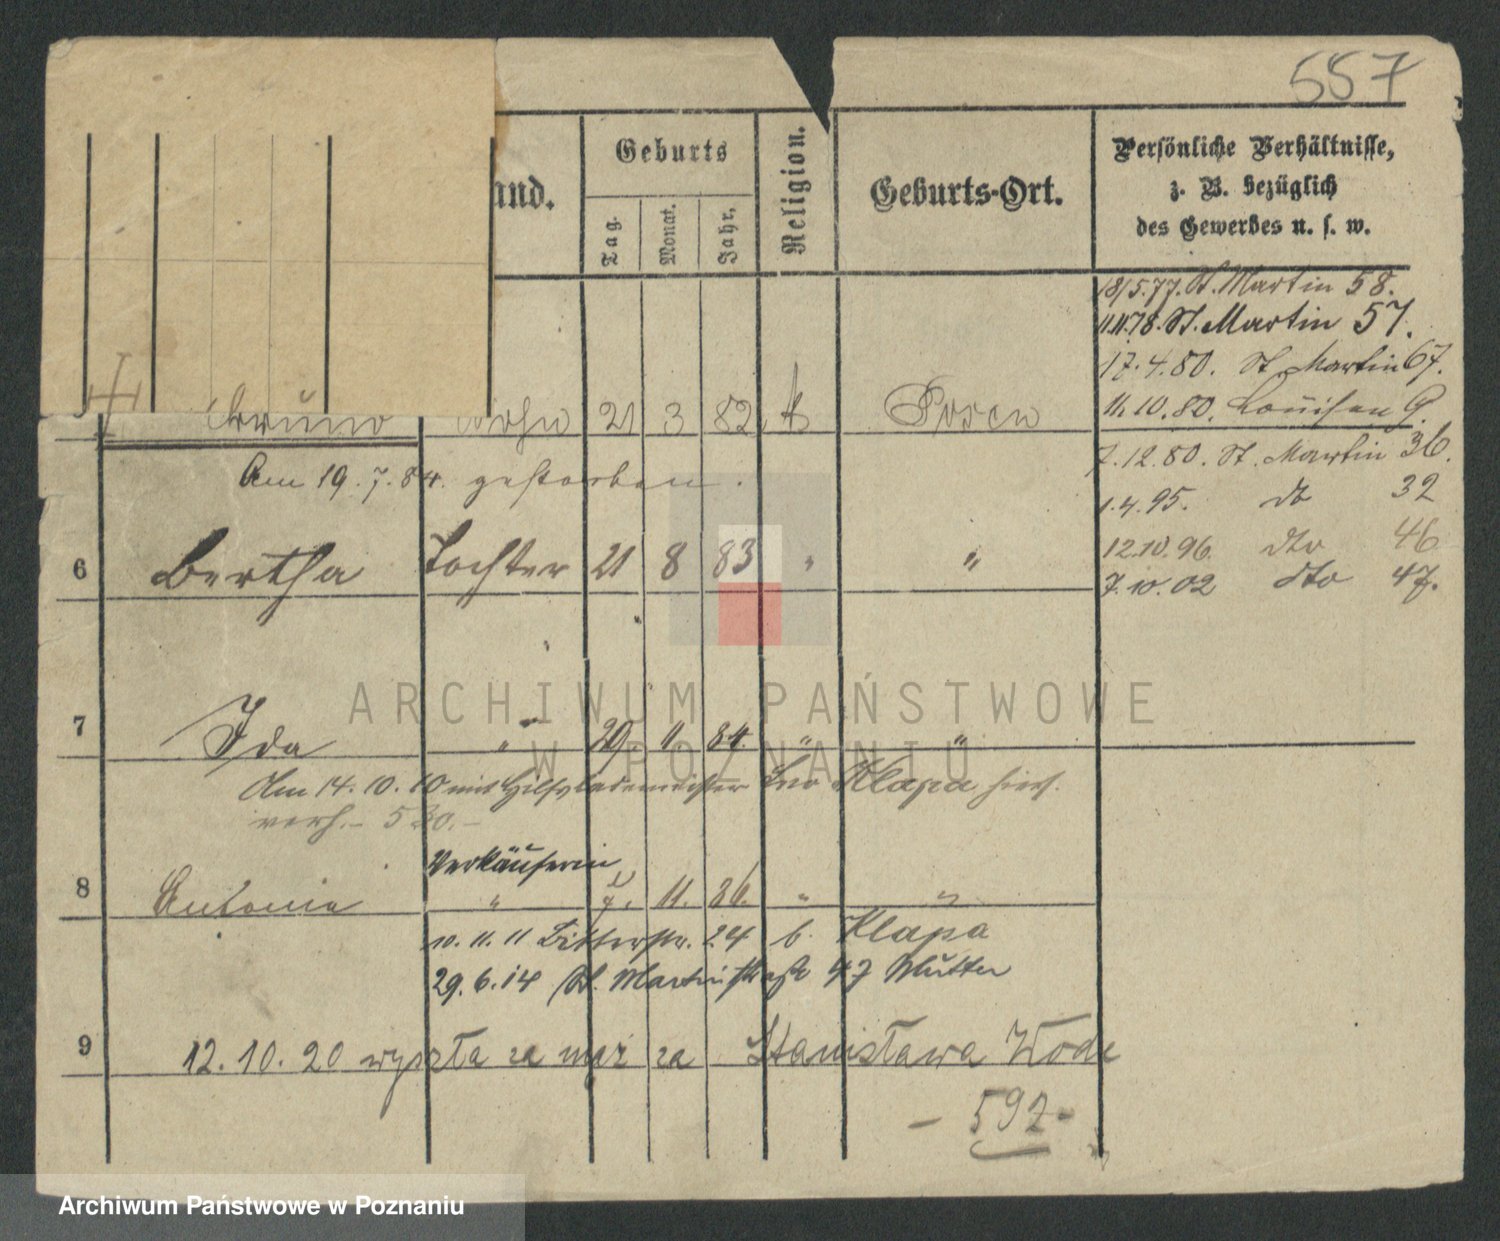 557
and.
Geburts
Tag.
Monat.
Jahr.
Religion.
Geburts-Ort.
Persönliche Verhältnisse,
z. B. bezüglich
des Gewerbes u. s. w.
18/5.77. St. Martin 58.
11.11.78. St. Martin 57.
17.4.80. St. Martin 67.
11.10.80. Louisen 9.
7.12.80. St. Martin 36.
1.4.95. do 32
12.10.96. dto 46
7.10.02 dto 47.
Bruno Sohn 21 3 82. k Posen
Am 19.7.84. gestorben.
6 Bertha Tochter 21 8 83 " "
7 Ida " 20 11 84. " "
Am 14.10.10 mit Hilfslademeister Leo Klapa hier.
verh. - 520. -
Verkäuferin
8 Antonie " 7. 11. 86. " "
10.11.11 Bitterstr. 24 b. Klapa
29.6.14 St. Martinstraße 47 Mutter
9 12.10.20 wyszła za mąż za Stanisława Wode
- 592 -
ARCHIWUM PAŃSTWOWE
W POZNANIU
Archiwum Państwowe w Poznaniu